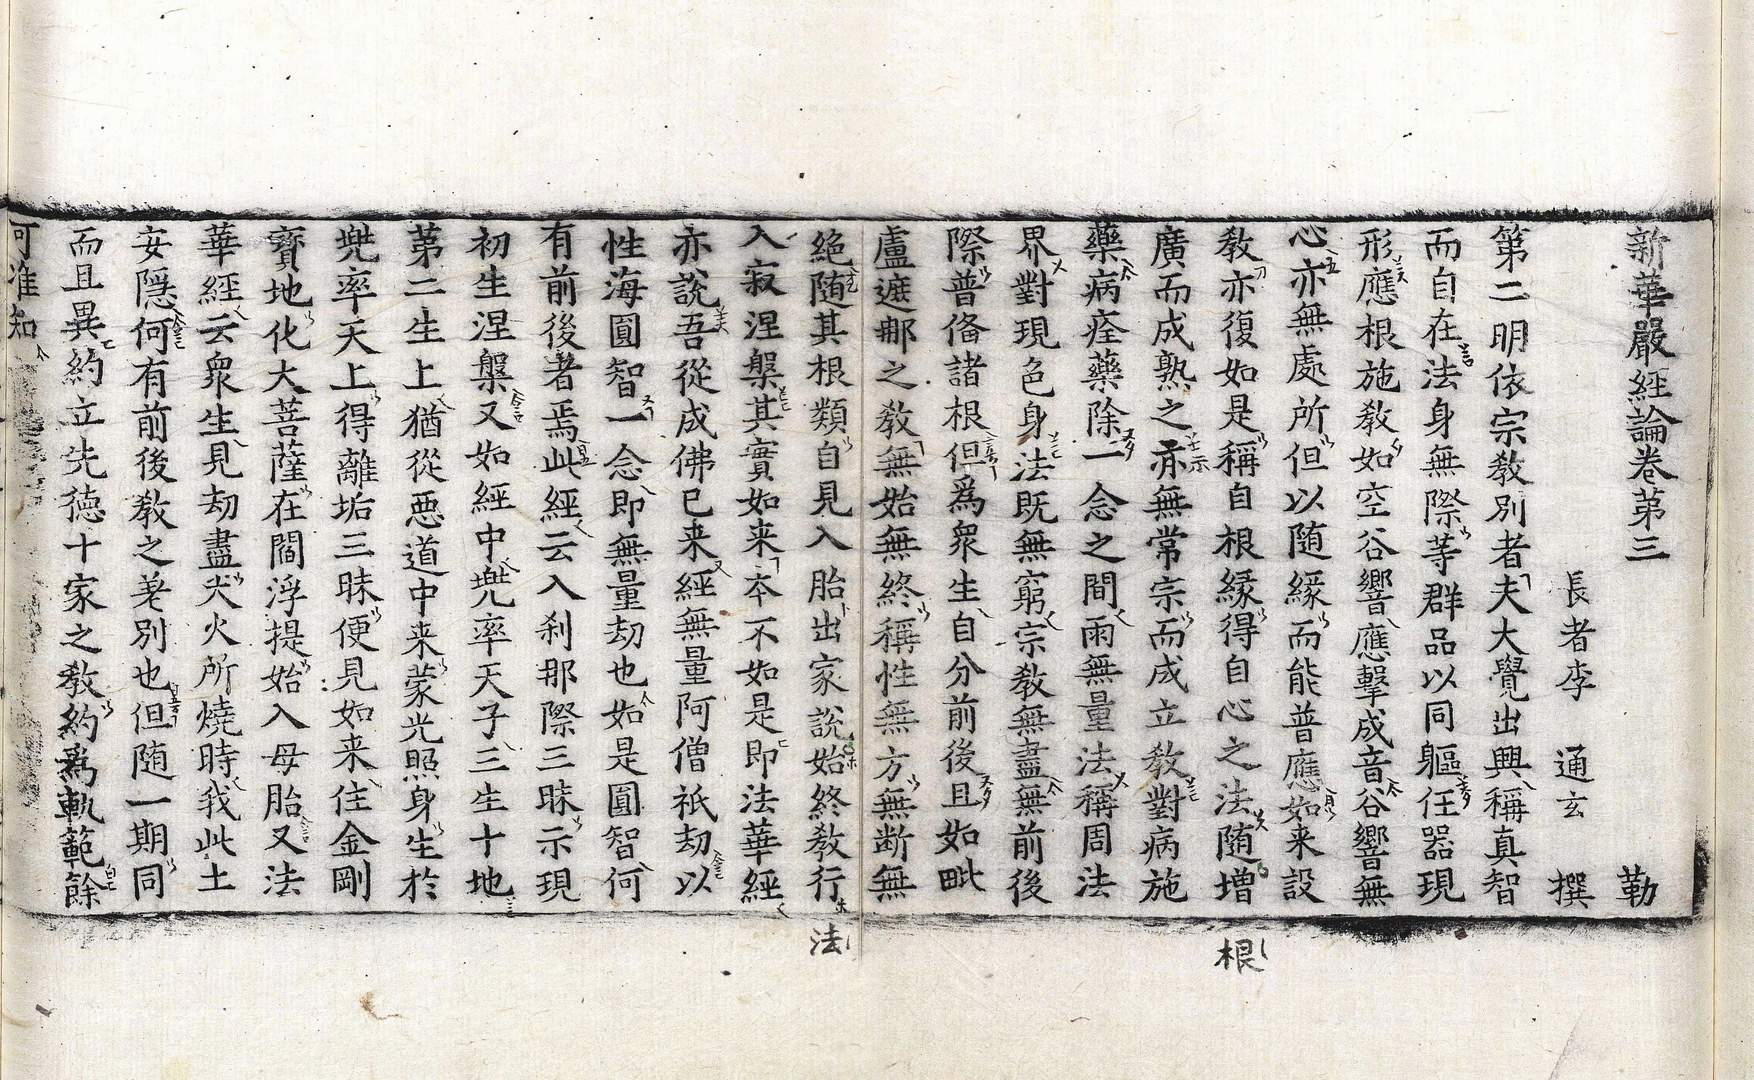 新華嚴經論卷第三　勒
長者李　通玄　撰
第二明依宗敎別者夫大覺出興稱真智
而自在法身無際等群品以同軀任器現
形應根施敎如空谷響應擊成音谷響無
心亦無處所但以随緣而能普應如来設
敎亦復如是稱自根緣得自心之法随增
根
廣而成熟之亦無常宗而成立敎對病施
藥病痊藥除一念之間雨無量法稱周法
界對現色身法既無窮宗敎無盡無前後
際普俻諸根但爲衆生自分前後且如毗
盧遮那之敎無始無終稱性無方無断無
絶随其根類自見入胎出家說始終敎行
法
入寂涅槃其實如来本不如是即法華經
亦說吾從成佛已来經無量阿僧祇劫以
性海圓智一念即無量劫也如是圓智何
有前後者焉此經云入刹那際三昧示現
初生涅槃又如經中兠率天子三生十地
第二生上猶從惡道中来蒙光照身生於
兠率天上得離垢三昧便見如来住金剛
寶地化大菩薩在閻浮提始入母胎又法
華經云衆生見劫盡大火所燒時我此土
安隱何有前後敎之差別也但随一期同
而且異約立先德十家之敎約爲軌範餘
可准知